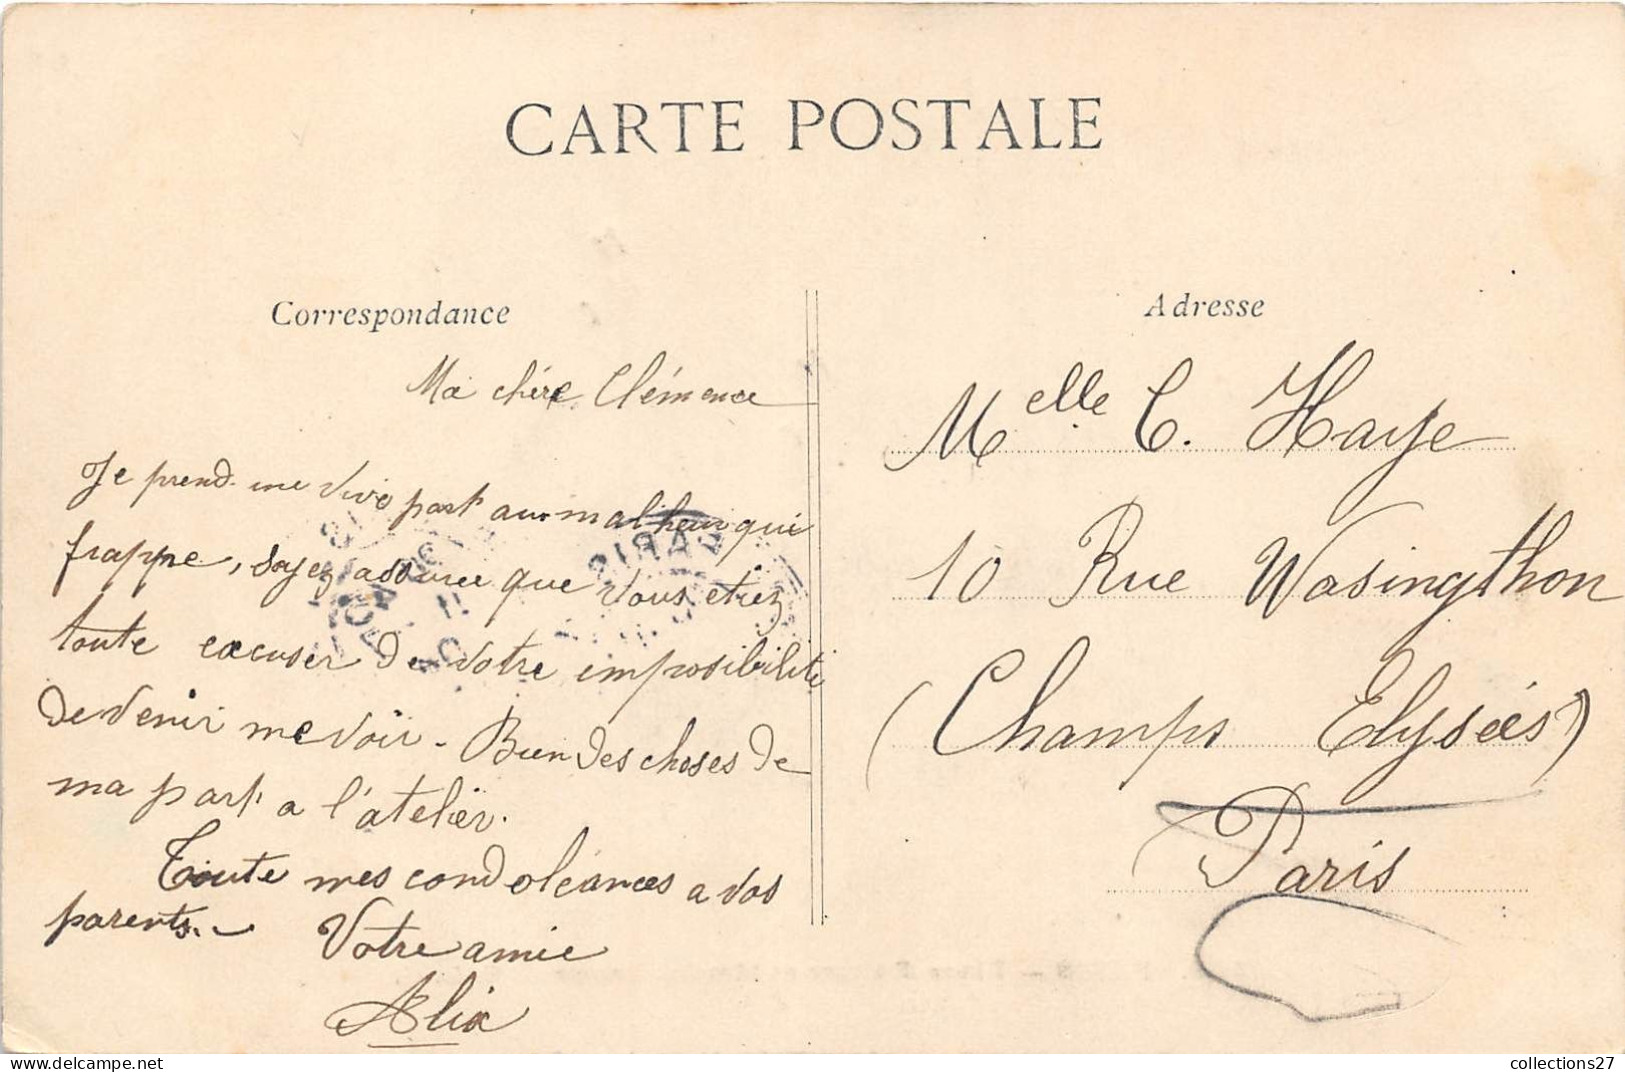 CARTE POSTALE
Correspondance
Ma chère Clémence
Je prend une vive part au malheur qui
frappe, soyez assuree que vous etiez
toute excuser de votre impossibilité
de venir me voir. Bien des choses de
ma part a l'atelier.
Toute mes condoléances a vos
parents.
Votre amie
Alix
Adresse
Melle C. Haye
10 Rue Wasingthon
(Champs Elysées)
Paris
PARIS
collections27